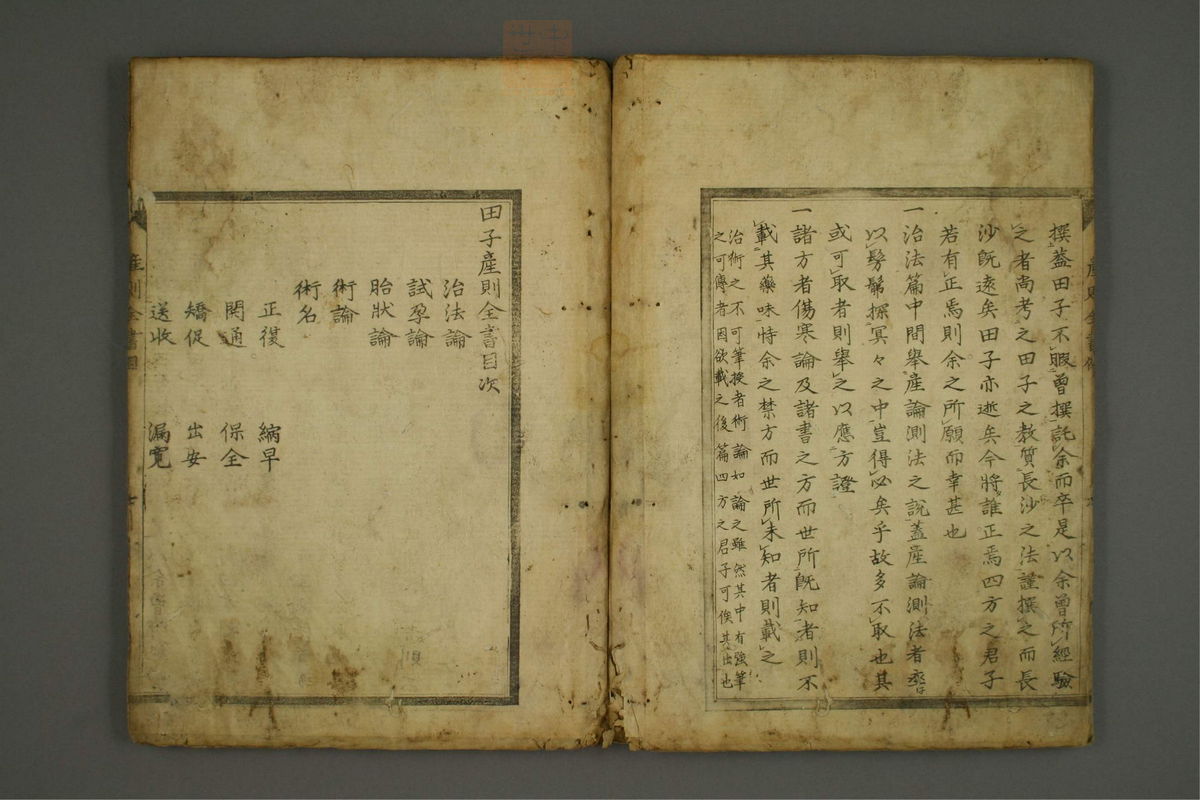 撰蓋田子不暇曾撰託余而卒是以余曾所經驗
之者尚考之田子之教質長沙之法謹撰之而長
沙既遠矣田子亦逝矣今將誰正焉四方之君子
若有正焉則余之所願而幸甚也
一治法篇中間舉産論測法之說蓋産論測法者
以髣髴探冥々之中豈得必矣乎故多不取也其
或可取者則舉之以應方證
一諸方者傷寒論及諸書之方而世所既知者則不
載其藥味恃余之禁方而世所未知者則載之
治術之不可筆授者術論如論之雖然其中有強筆
之可傳者因欲載之後篇四方之君子可俟其出也
田子産則全書目次
治法論
試孕論
胎狀論
術論
術名
正復 縮早
開通 保全
矯促 出安
送收 漏寛
産則全書目